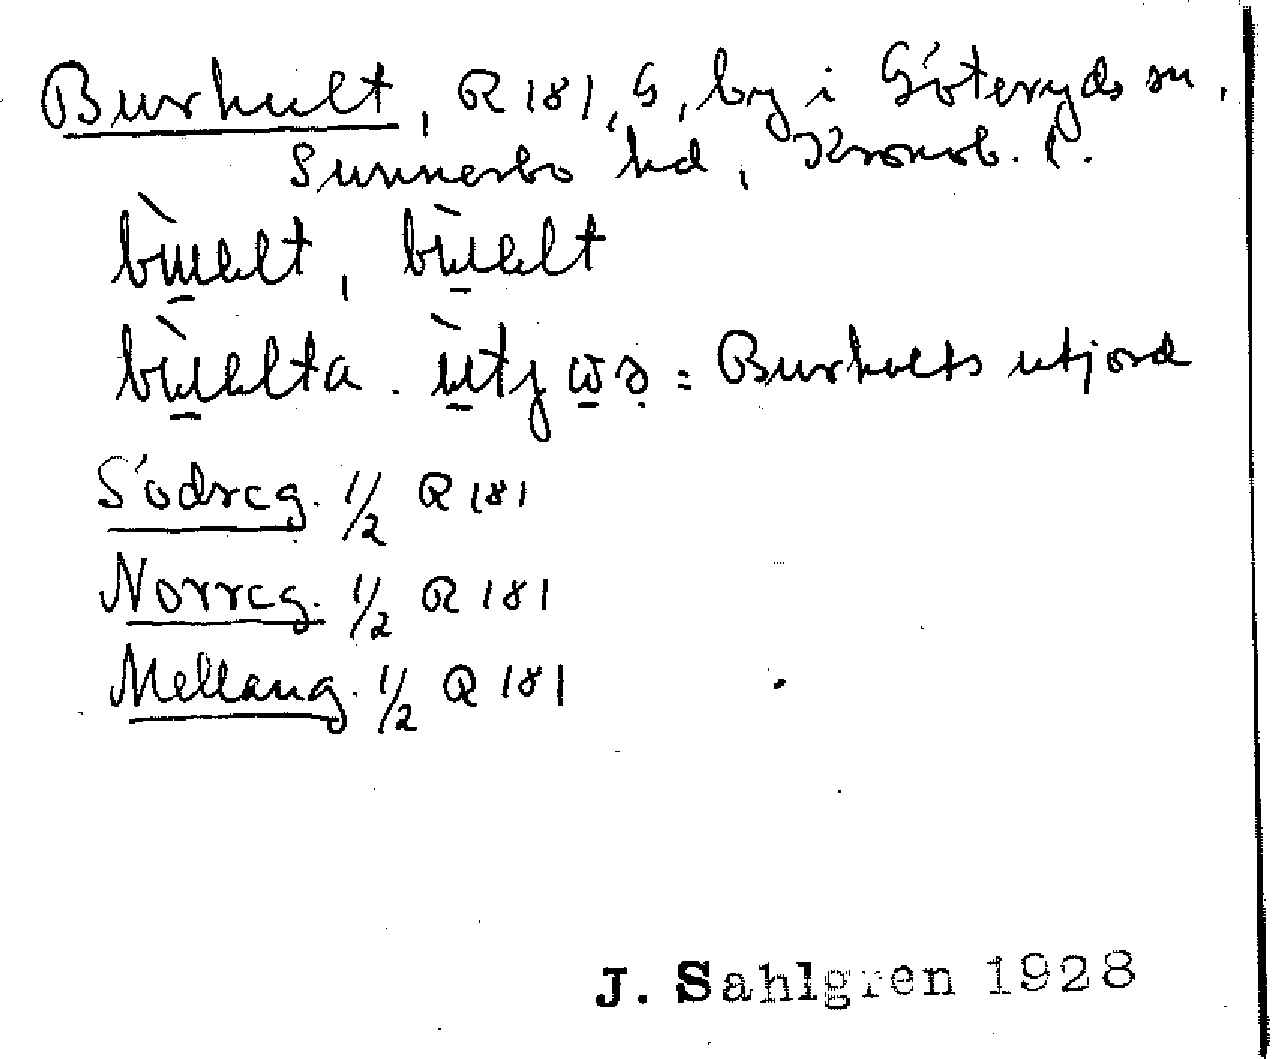 Burhult, R 181, G, by i Göteryds sn,
Sunnerbo hd, Kronob. l.
bùu̱lt, bùu̱lt
bùu̱lta. ùtj ω̱ = Burhults utjord
Södreg. 1/2 R 181
Norreg. 1/2 R 181
Mellang. 1/2 R 181
J. Sahlgren 1928